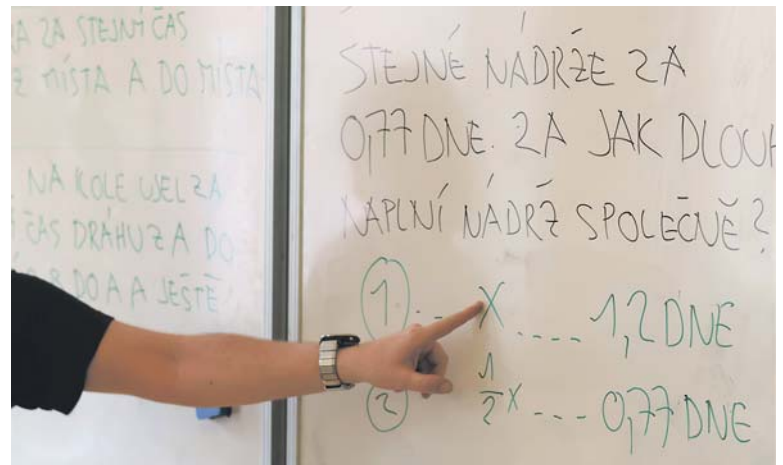 ZA STEJNÝ ČAS
Z MÍSTA A DO MÍSTA
NA KOLE UJEL ZA
ČAS DRÁHU Z A DO
B DO A A JEŠTĚ
STEJNÉ NÁDRŽE ZA
0,77 DNE. ZA JAK DLOUH
NAPLNÍ NÁDRŽ SPOLEČNĚ?
1 ... X .... 1,2 DNE
2 1/2 X --- 0,77 DNE